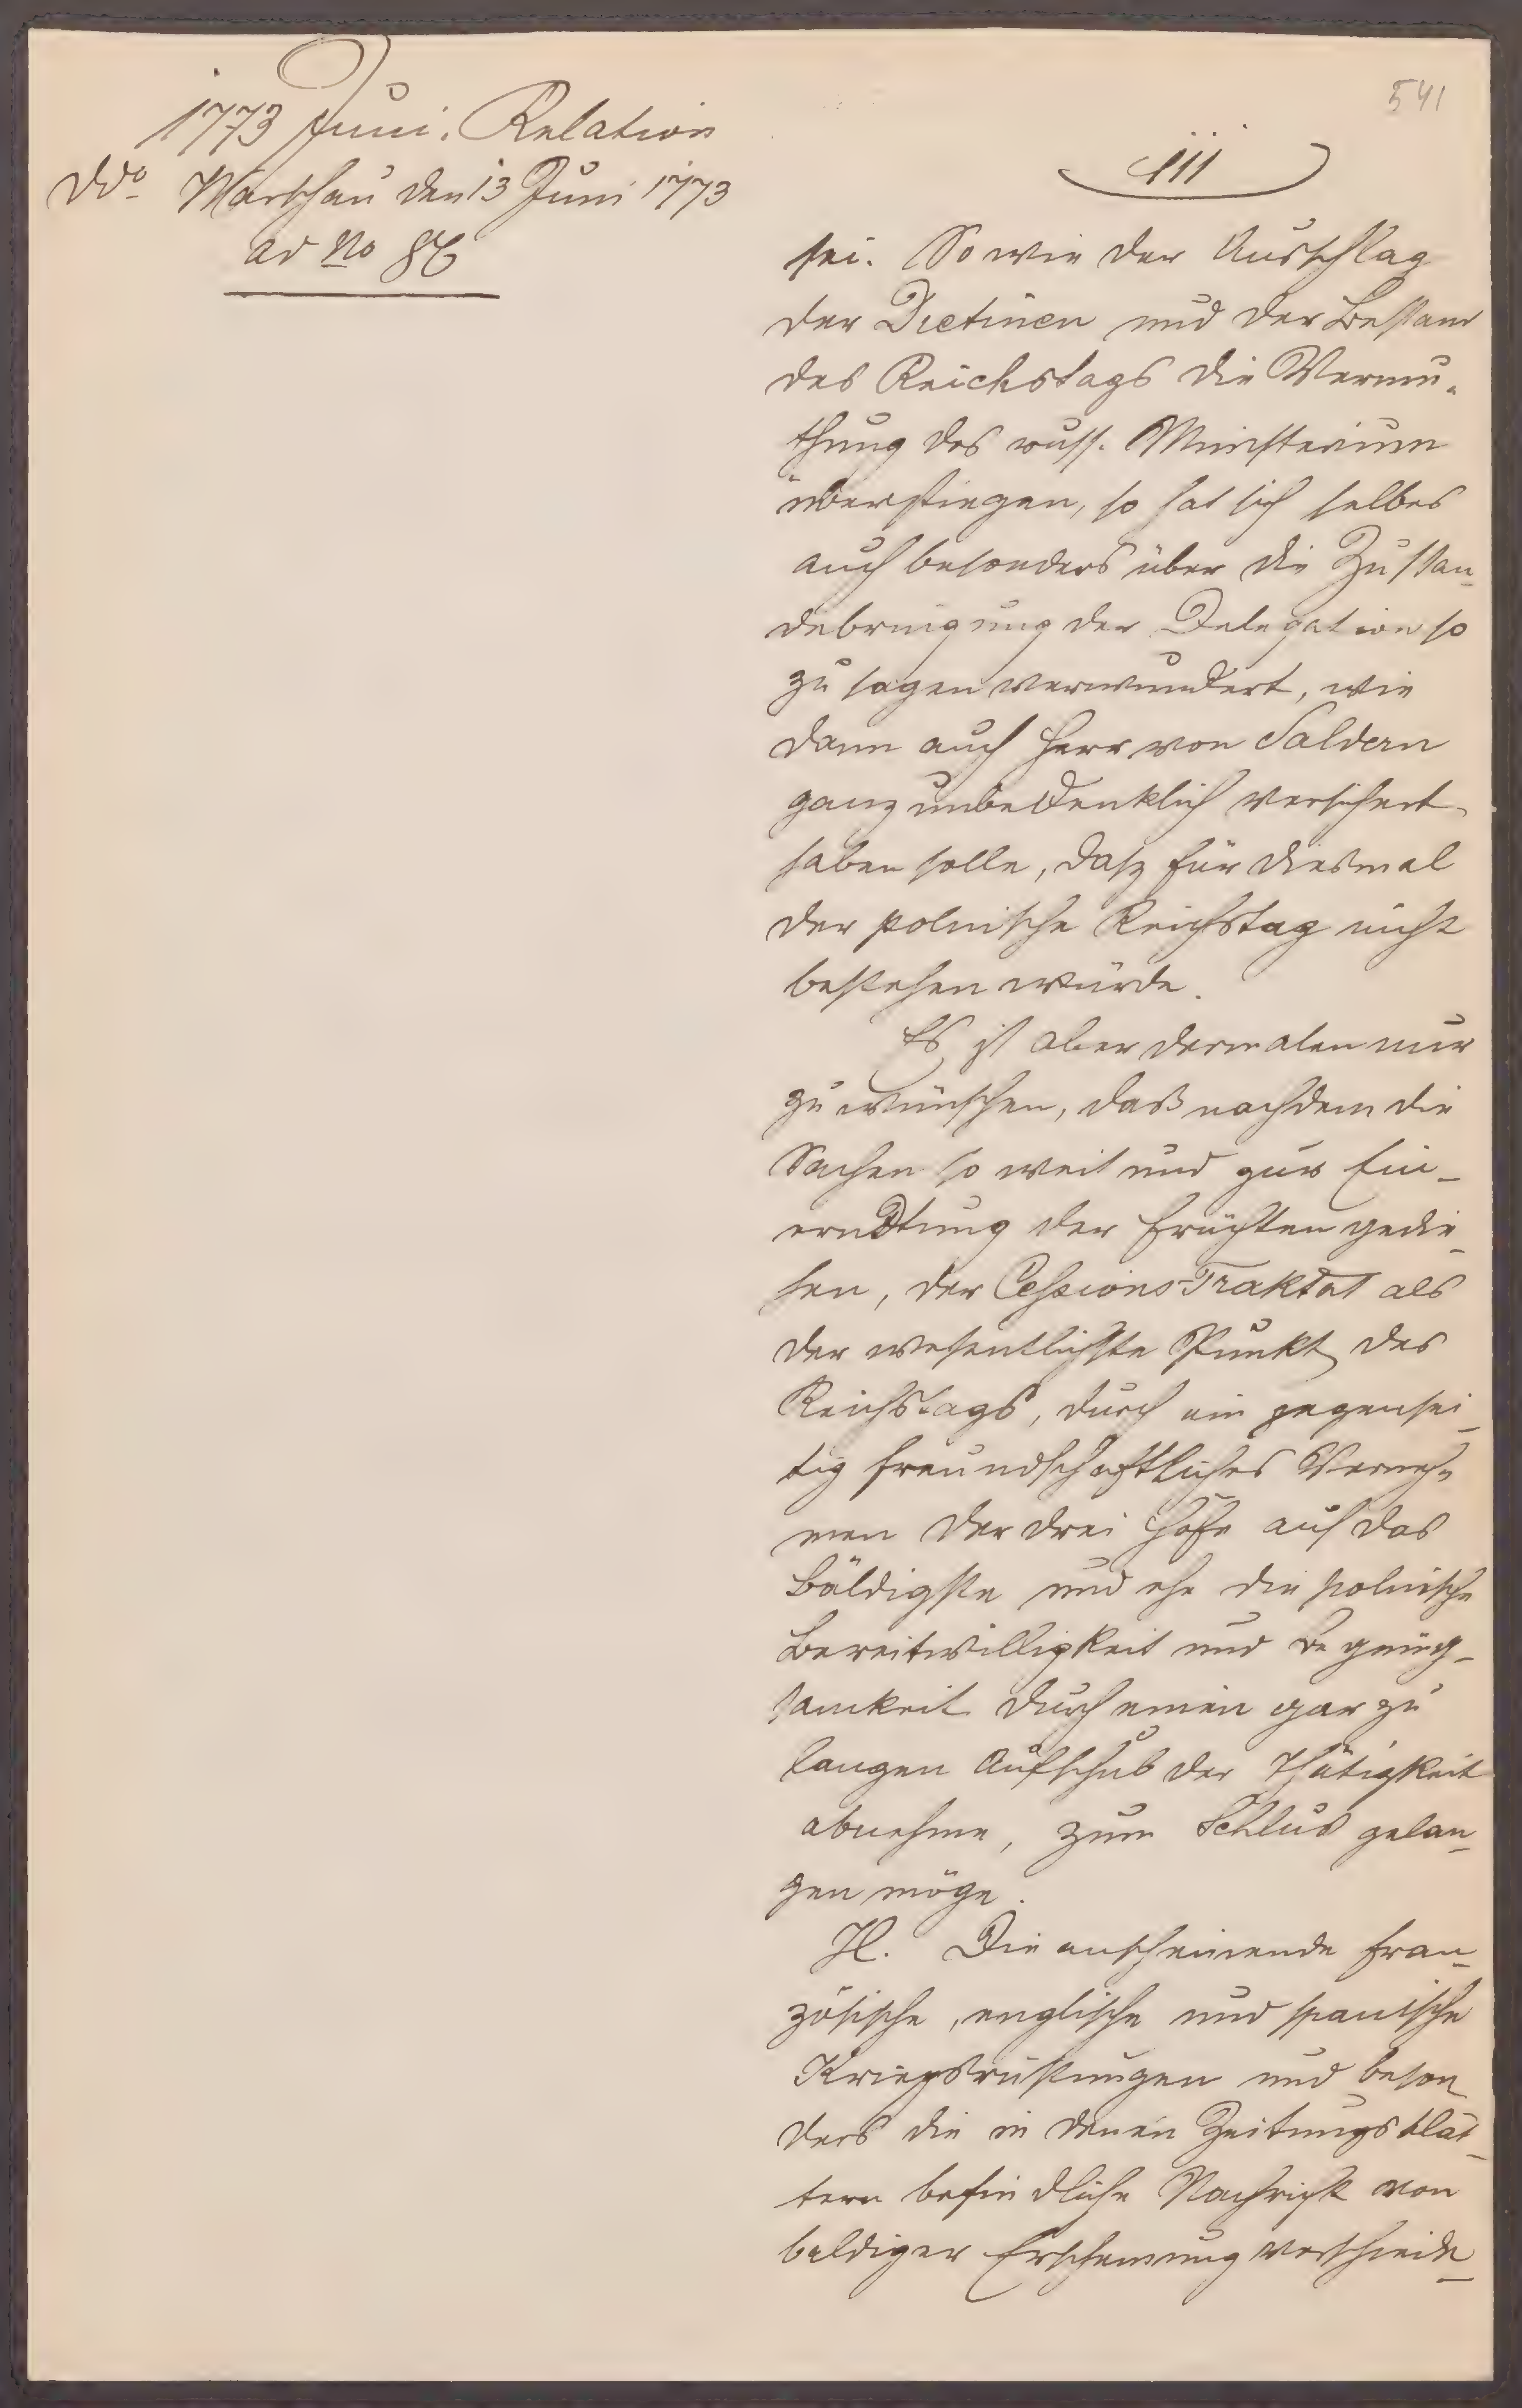 1773 Juni. Relation
ddo Warschau den 13 Juni 1773
ad No 86
541
III
sei. So wie der Ausschlag
der Dietinen und der Bestand
des Reichstags die Vermu-
thung des russ. Ministerium
überstiegen, so hat sich selbes
auch besonders über die Zustan-
debringung der Delegation so
zu sagen verwundert, wie
dann auch Herr von Saldern
ganz unbedenklich versichert
haben solle, dasz für diesmal
der polnische Reichstag nicht
bestehen würde.
Es ist aber dermalen nur
zu wünschen, daß nachdem die
Sachen so weit und zur Ein-
erndtung der Früchten gedie-
hen, der Cessions-Traktat als
der wesentlichste Punkt des
Reichstags, durch ein gegensei-
tig freundschaftliches Verneh-
men der drei Höfe auf das
Bäldigste und ehe die polnische
Bereitwilligkeit und Begnüg-
samkeit durch einen gar zu
langen Aufschub der Thätigkeit
abnehme, zum Schlus gelan-
gen möge.
H. Die anscheinende fran-
zösische, englische und spanische
Kriegsrüstungen und beson-
ders die in denen Zeitungsblät-
tern befindliche Nachricht von
baldiger Erscheinung verschiede-